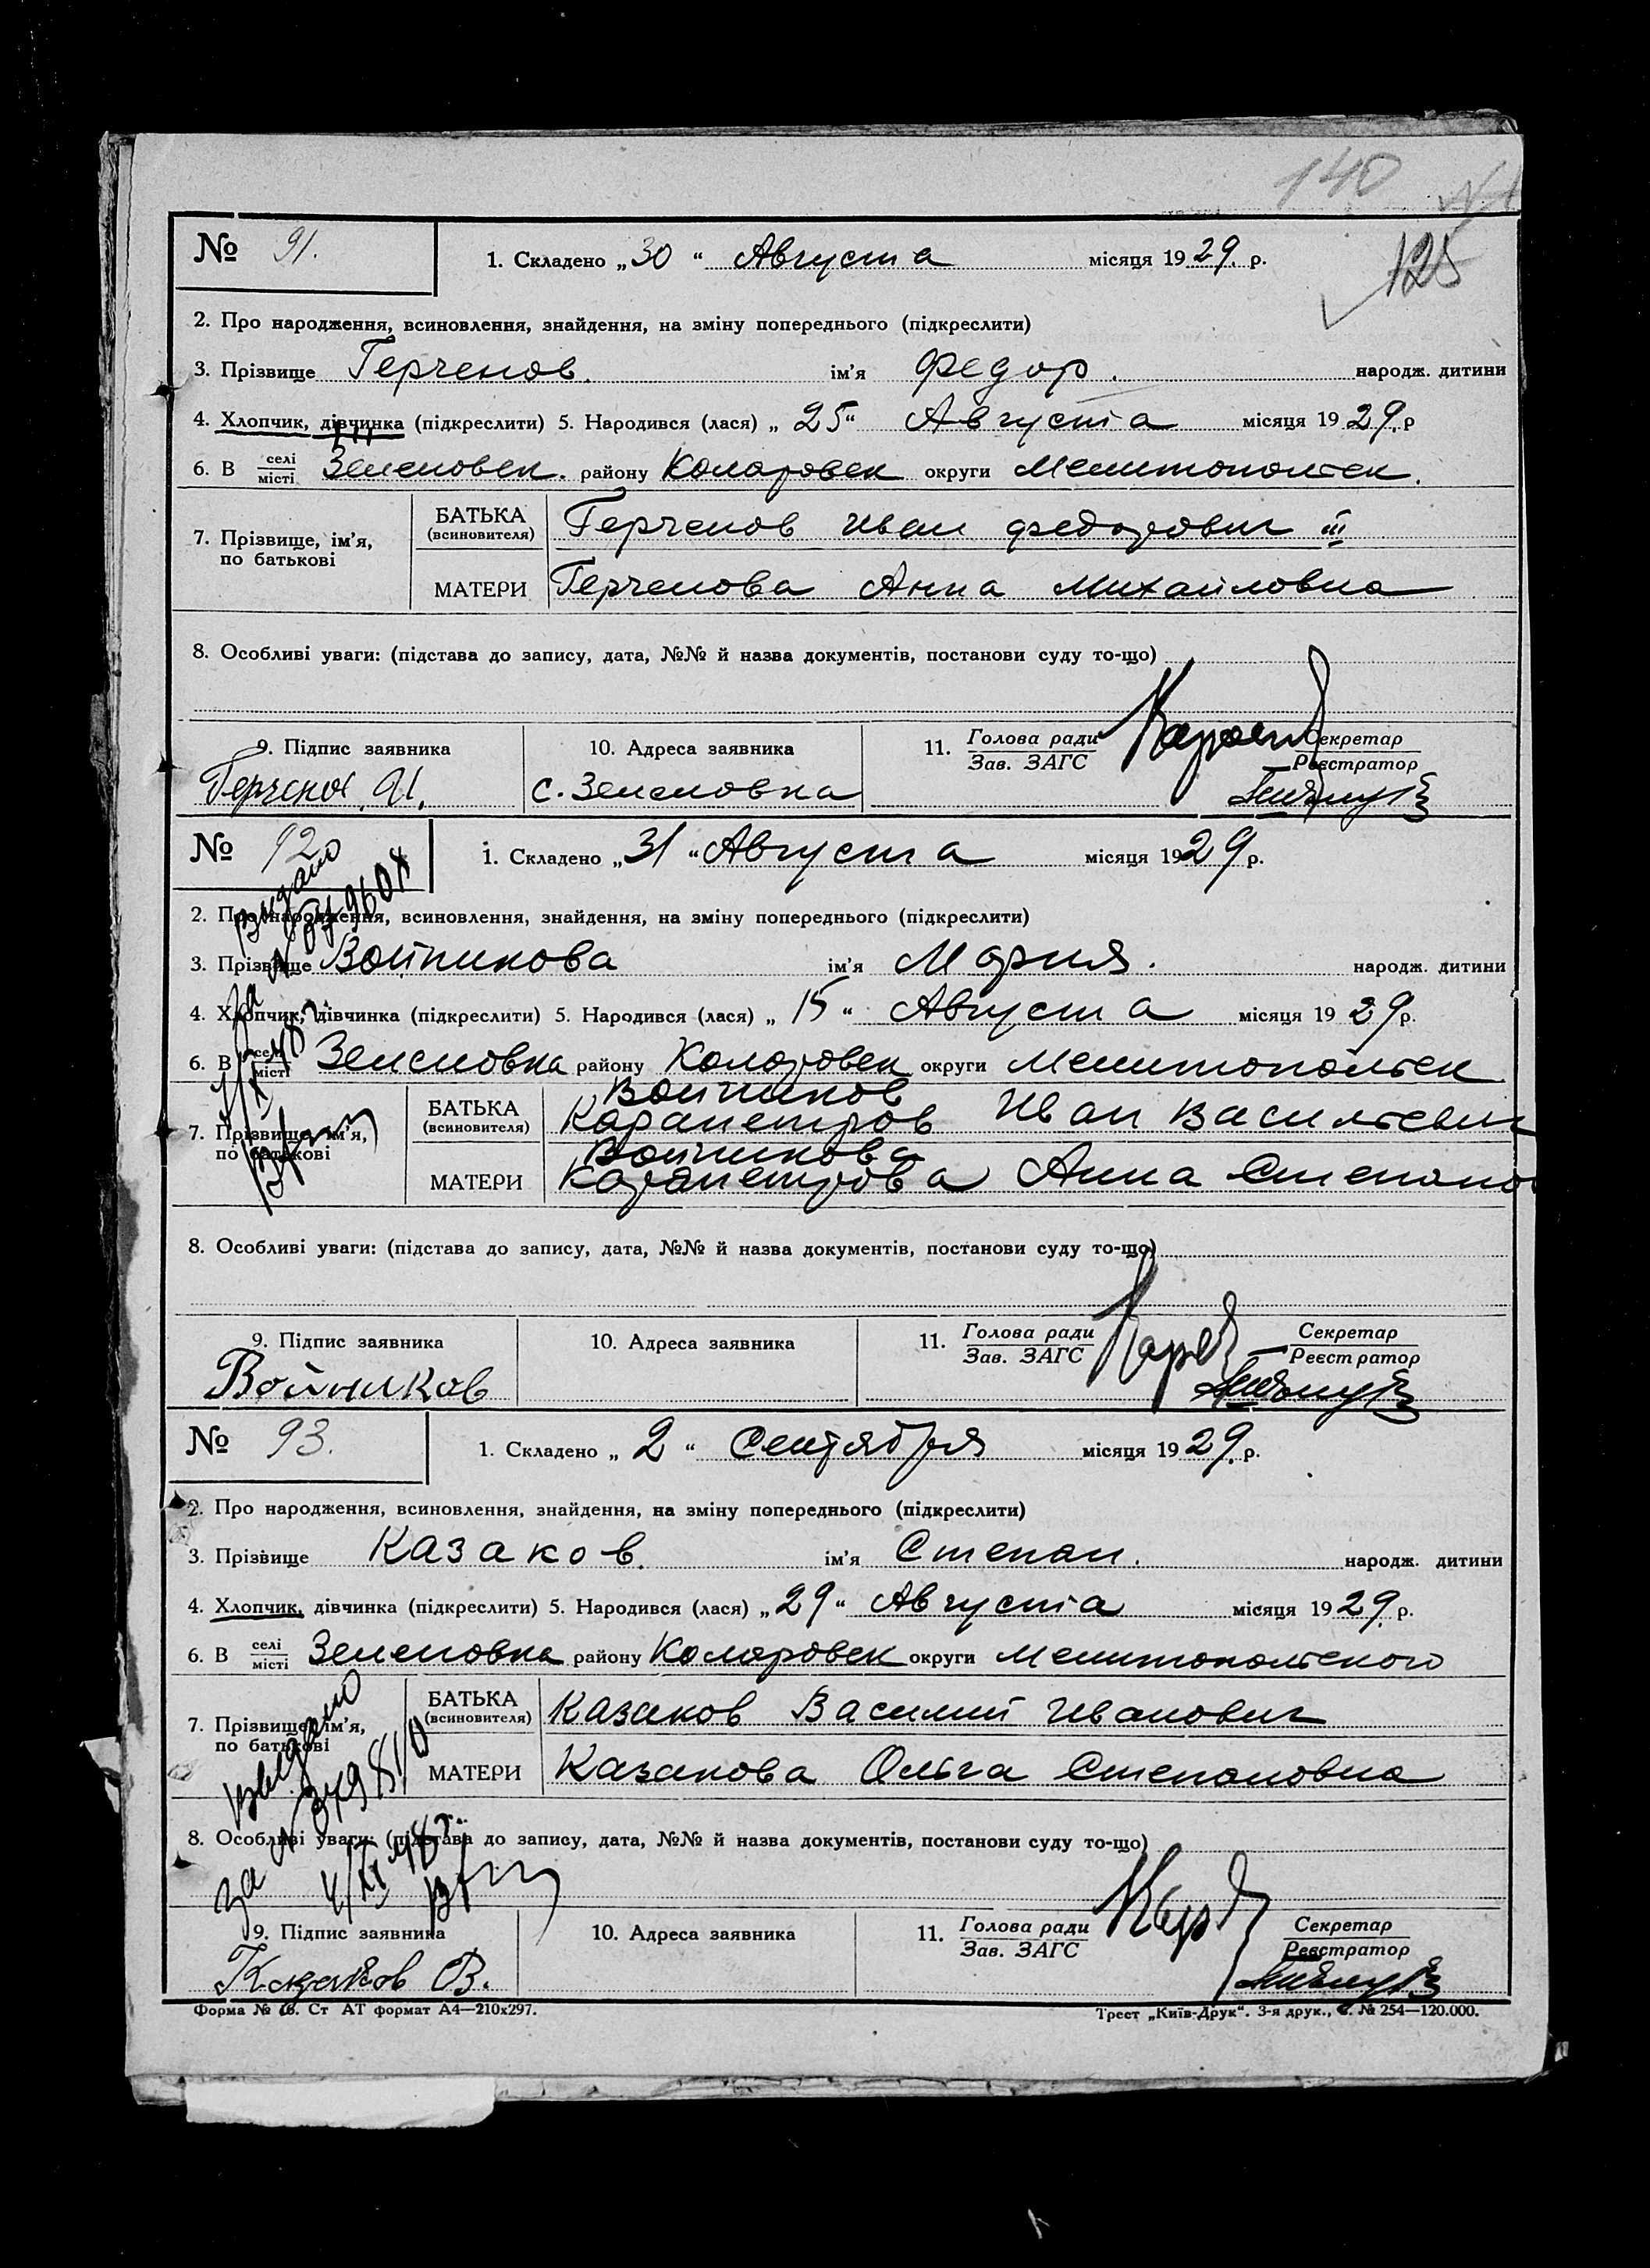 140
125
№ 91. 1. Складено „30“ Августа місяця 1929. р.
2. Про народження, всиновлення, знайдення, на зміну попереднього (підкреслити)
3. Прізвище Герченов. ім’я Федор. народж. дитини
4. Хлопчик, дівчинка (підкреслити) 5. Народився (лася) „25“ Августа місяця 1929. р
6. В селі місті Зеленовск. району Коларовск округи Мелитопольск.
7. Прізвище, ім’я, по батькові
БАТЬКА (всиновителя) Герченов Иван Федорович III
МАТЕРИ Герченова Анна Михайловна
8. Особливі уваги: (підстава до запису, дата, №№ й назва документів, постанови суду то-що)
9. Підпис заявника 10. Адреса заявника 11. Голова ради Зав. ЗАГС Секретар Реєстратор
Герченов И. с. Зеленовка
№ 92 1. Складено „31“ Августа місяця 1929 р.
Видано
2. Про народження, всиновлення, знайдення, на зміну попереднього (підкреслити)
3. Прізвище Войникова ім’я Мария. народж. дитини
4. Хлопчик, дівчинка (підкреслити) 5. Народився (лася) „15“ Августа місяця 1929 р.
6. В селі місті Зеленовка району Коларовск округи Мелитопольск
7. Прізвище, ім’я, по батькові
Войников
БАТЬКА (всиновителя) Карапетров Иван Васильевич
Войникова
МАТЕРИ Карапетрова Анна Степано
8. Особливі уваги: (підстава до запису, дата, №№ й назва документів, постанови суду то-що)
9. Підпис заявника 10. Адреса заявника 11. Голова ради Зав. ЗАГС Секретар Реєстратор
Войников
№ 93. 1. Складено „2“ Сентября місяця 1929. р.
2. Про народження, всиновлення, знайдення, на зміну попереднього (підкреслити)
3. Прізвище Казаков. ім’я Степан. народж. дитини
4. Хлопчик, дівчинка (підкреслити) 5. Народився (лася) „29“ Августа місяця 1929. р.
6. В селі місті Зеленовка району Коларовск округи Мелитопольского
7. Прізвище, ім’я, по батькові
БАТЬКА (всиновителя) Казаков Василий Иванович
МАТЕРИ Казакова Ольга Степановна
Выдано
8. Особливі уваги: (підстава до запису, дата, №№ й назва документів, постанови суду то-що)
9. Підпис заявника 10. Адреса заявника 11. Голова ради Зав. ЗАГС Секретар Реєстратор
Казаков В.
Форма № 16. Ст АТ формат А4—210х297. Трест „Київ-Друк“. 3-я друк., С. № 254—120.000.